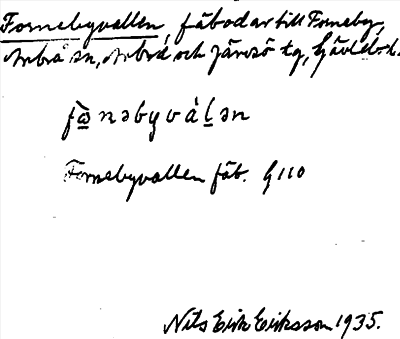 Fornebyvallen, fäbodar till Forneby,
Arbrå sn, Arbrå och Järvsö tg, Gävleb. l.
fò̱̱nəbyváḻən
Fornebyvallen fäb. G110
Nils Erik Eriksson 1935.